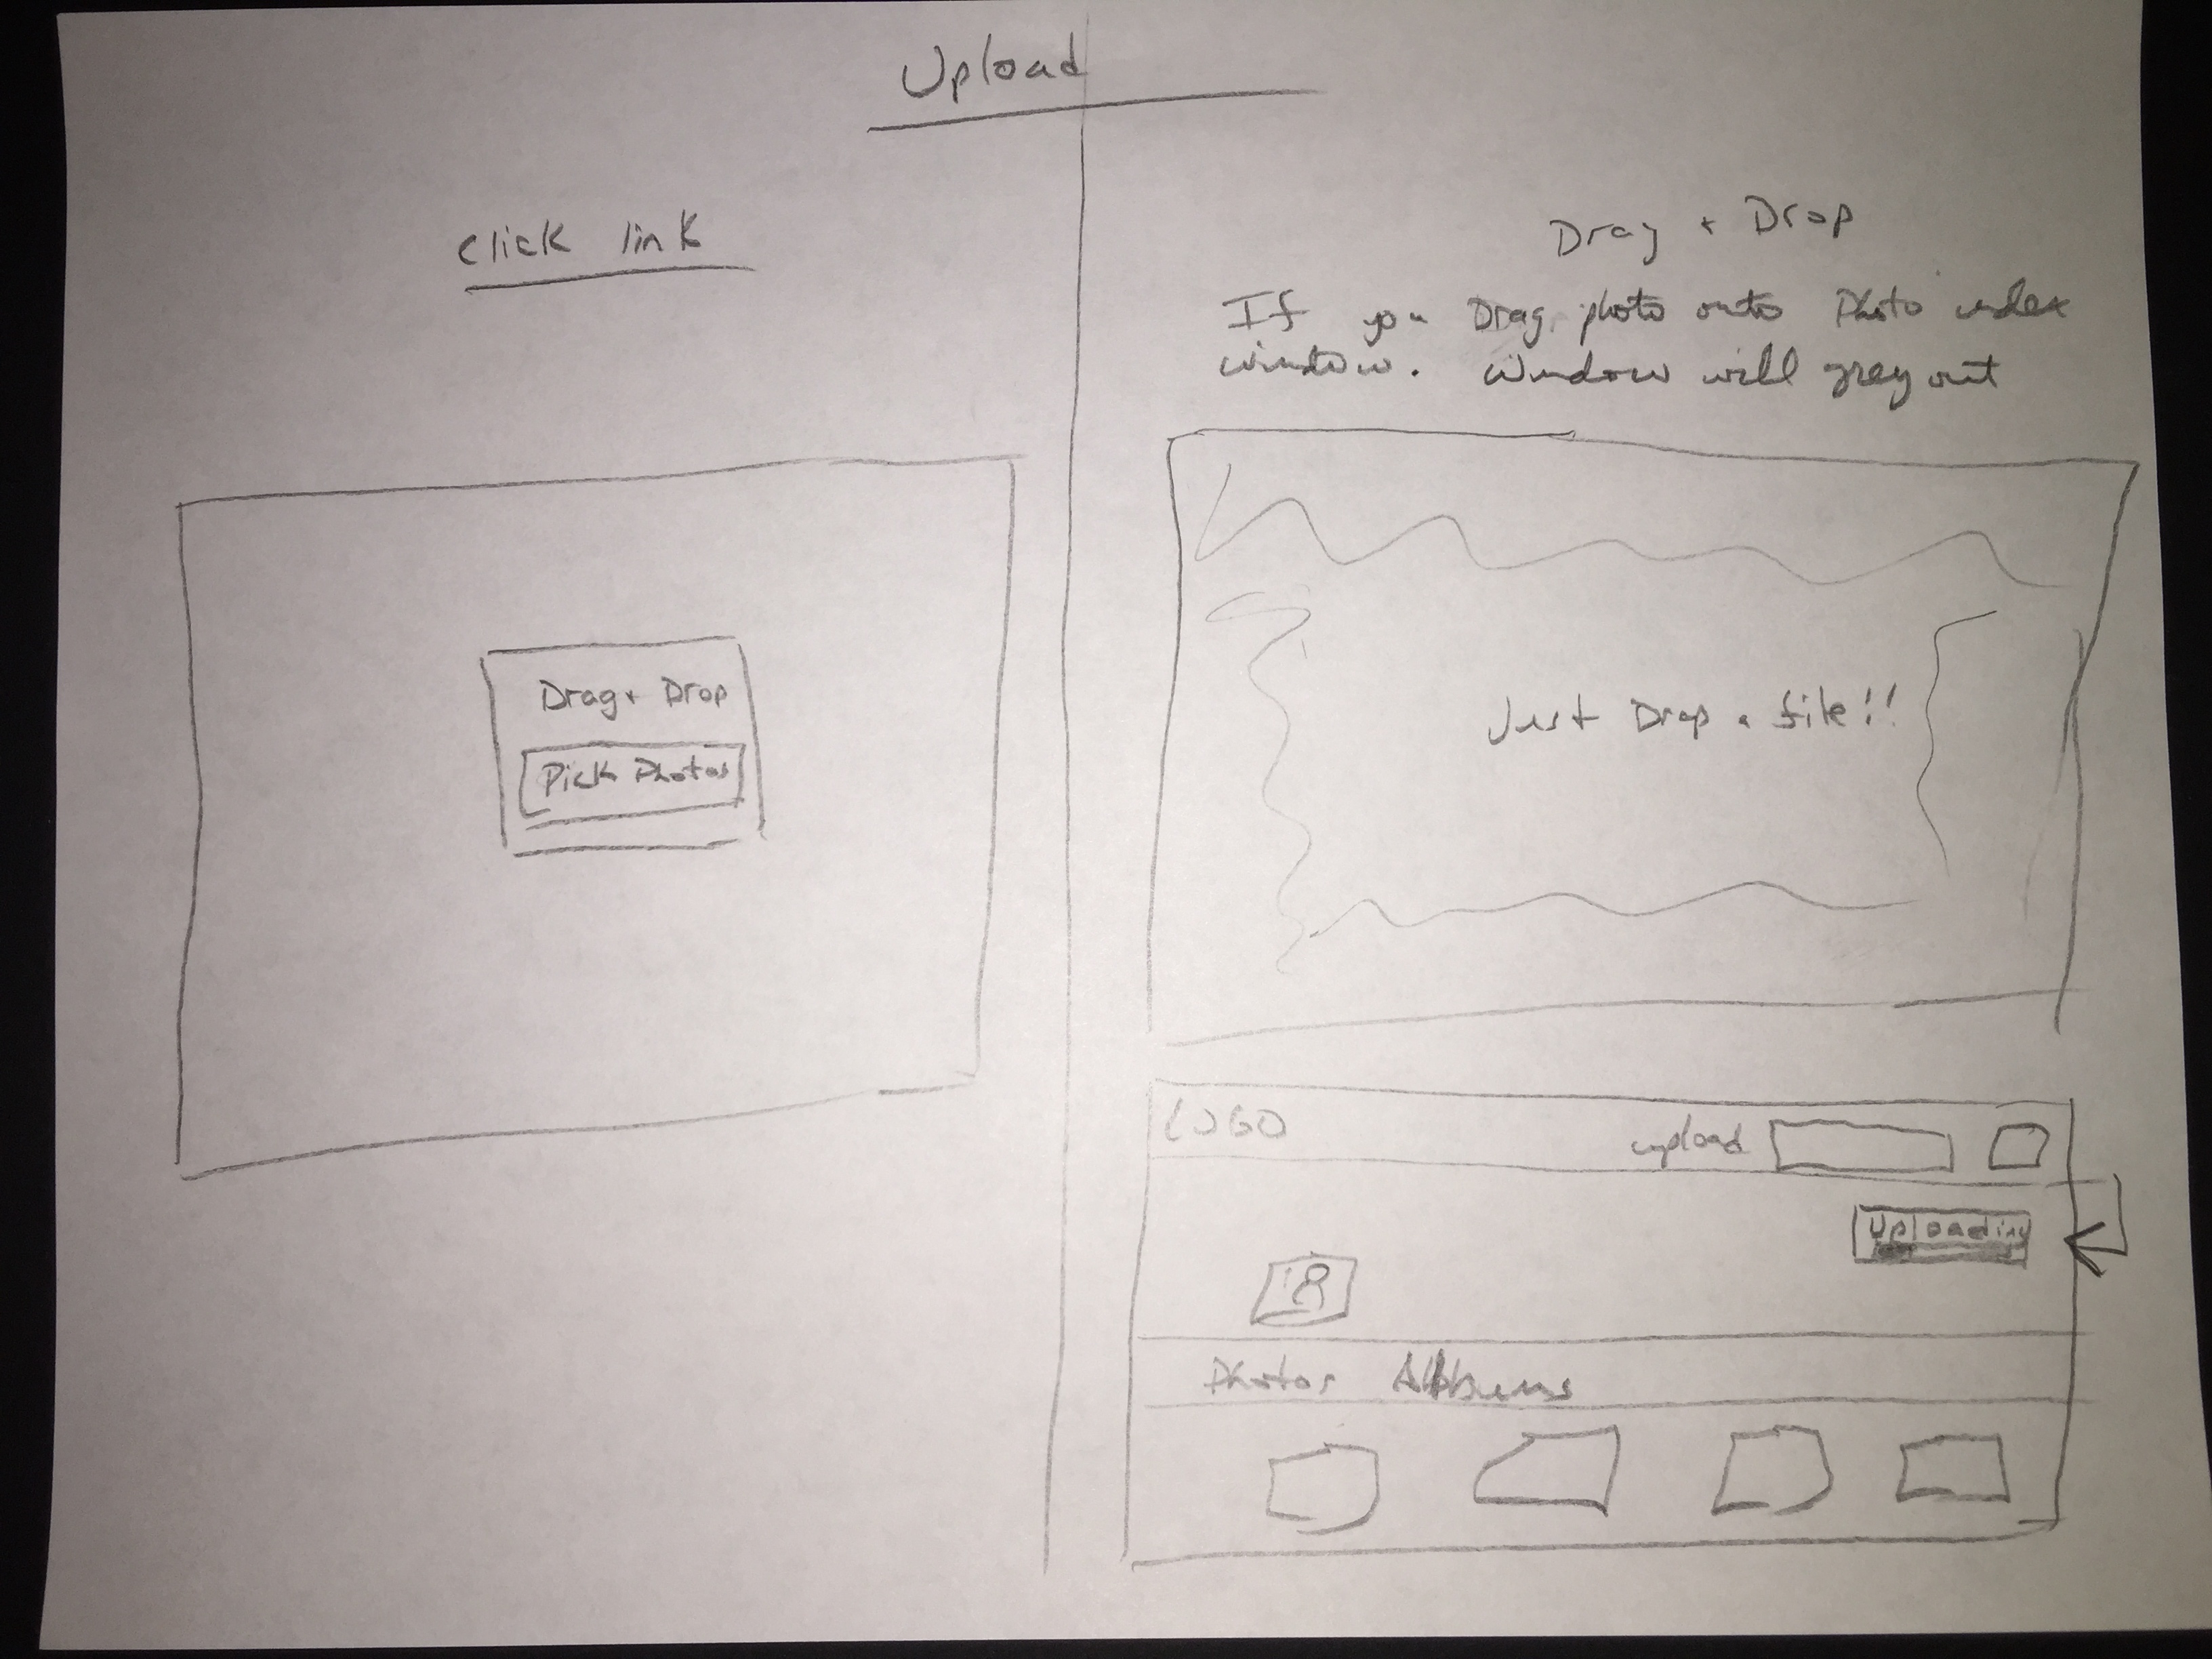 Upload
click link
Drag + Drop
Pick Photos
Drag + Drop
If you Drag photo onto Photo index
window. Window will grey out
Just Drop a file!!
LOGO
upload
Uploading
Photos Albums